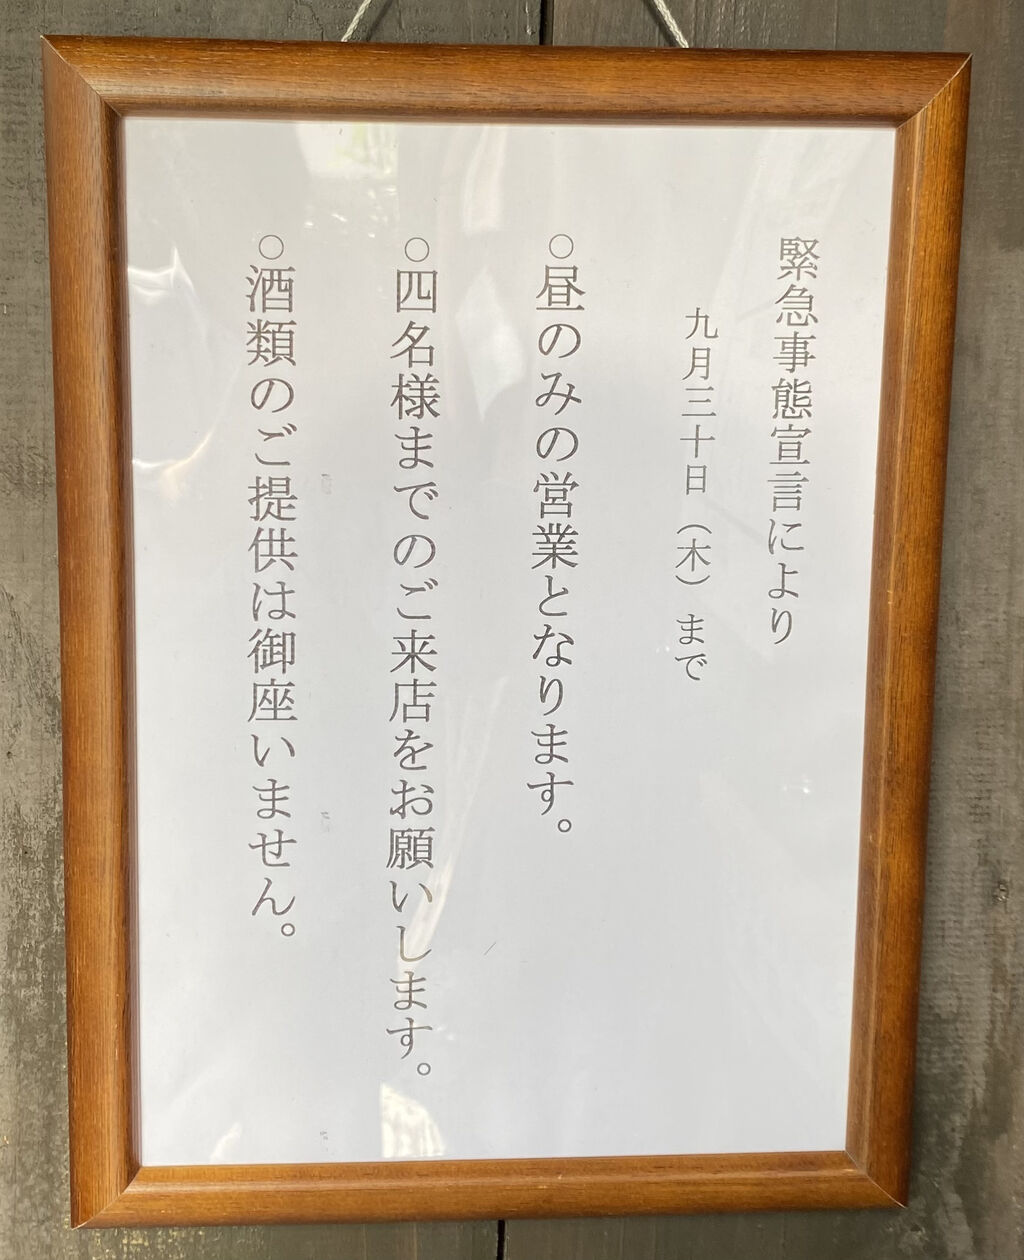 緊急事態宣言により
九月三十日（木）まで
○昼のみの営業となります。
○四名様までのご来店をお願いします。
○酒類のご提供は御座いません。